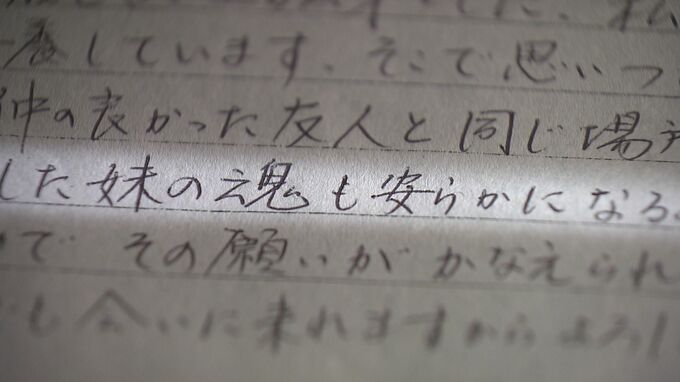 てた、私
一度しています。そこで思いつ
仲の良かった友人と同じ場所
した妹の魂も安らかになる
で その願いがかなえられ
も会いに来れますからよろし